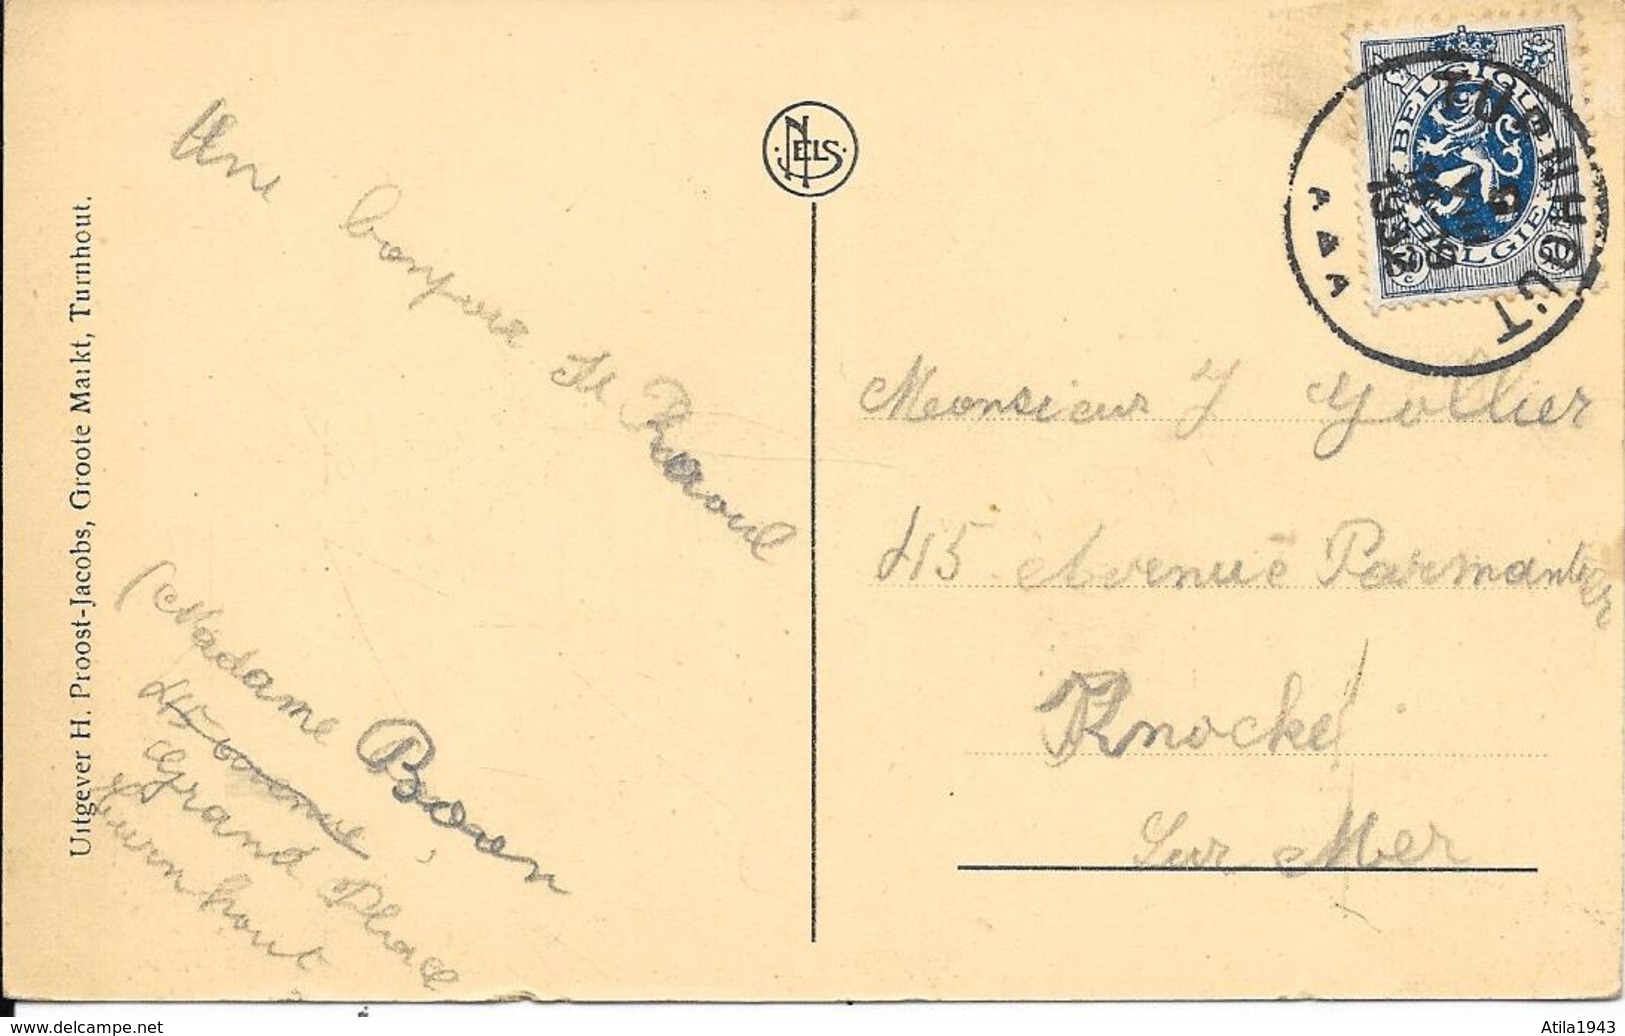 Uitgever H. Proost-Jacobs, Groote Markt, Turnhout.
NELS
Une bonjour
(Madame Boven
45 avenue
Grand Place
Turnhout
BELGIQUE
BELGIE
60 c
TURNHOUT
Monsieur J Gollier
45 Avenue Parmantier
Knocke
Sur Mer
delcampe.net
Atila1943